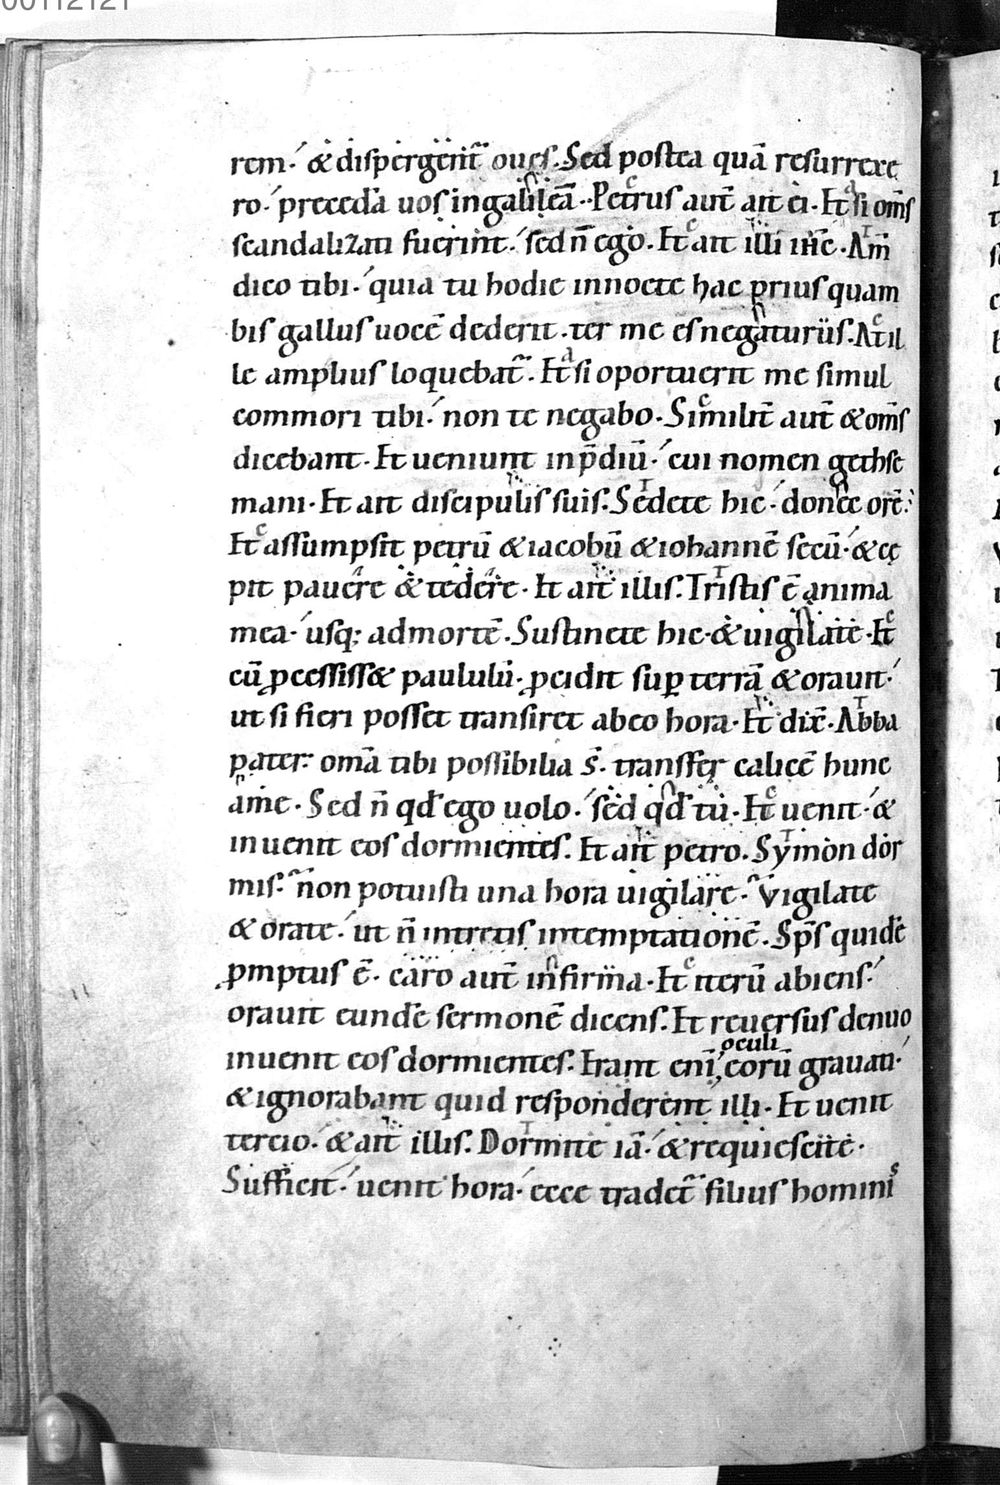 00112121
rem· & disperger̄t oues. Sed postea quā resurrexe
ro· precedā uos ingalileā· Petrus aut̄ ait ei· Et si om̄s
scandalizati fuerint· sed n̄ ego· Et ait illi ih̄c· Am̄
dico tibi· quia tu hodie innocte hac prius quam
bis gallus uocē dederit· ter me es negaturus· At il
le amplius loquebat̄· Et si oportuerit me simul
commori tibi· non te negabo· Similit̄ aut̄ & om̄s
dicebant· Et ueniunt inp̄diū· cui nomen gethse
mani· Et ait discipulis suis· Sedete hic· donec orē·
Et assumpsit petrū & iacobū & iohannē secū· & cę
pit pauere & tedere· Et ait illis· Tristis ē anima
mea· usq; admortē· Sustinete hic· & uigilate· Et
cū p̱cessiss& paululū· p̱cidit sup̱ terrā & orauit·
ut si fieri posset transiret abeo hora· Et dix̄· Abba
pater· om̄a tibi possibilia s̄· transfer calicē hunc
ame· Sed n̄ qd̄ ego uolo· sed qd̄ tu· Et uenit· &
inuenit eos dormientes· Et ait petro· Symon dor
mis· non potuisti una hora uigilare· Vigilate
& orate· ut n̄ intretis intemptationē· Sp̄s quidē
p̱mptus ē· caro aut̄ infirma· Et iterū abiens·
orauit eundē sermonē dicens· Et reuersus denuo
inuenit eos dormientes· Erant enī oculi eorū grauati·
& ignorabant quid responderent illi· Et uenit
tercio· & ait illis· Dormite iā· & requiescite·
Sufficit· uenit hora· ecce tradet̄ filius hominis